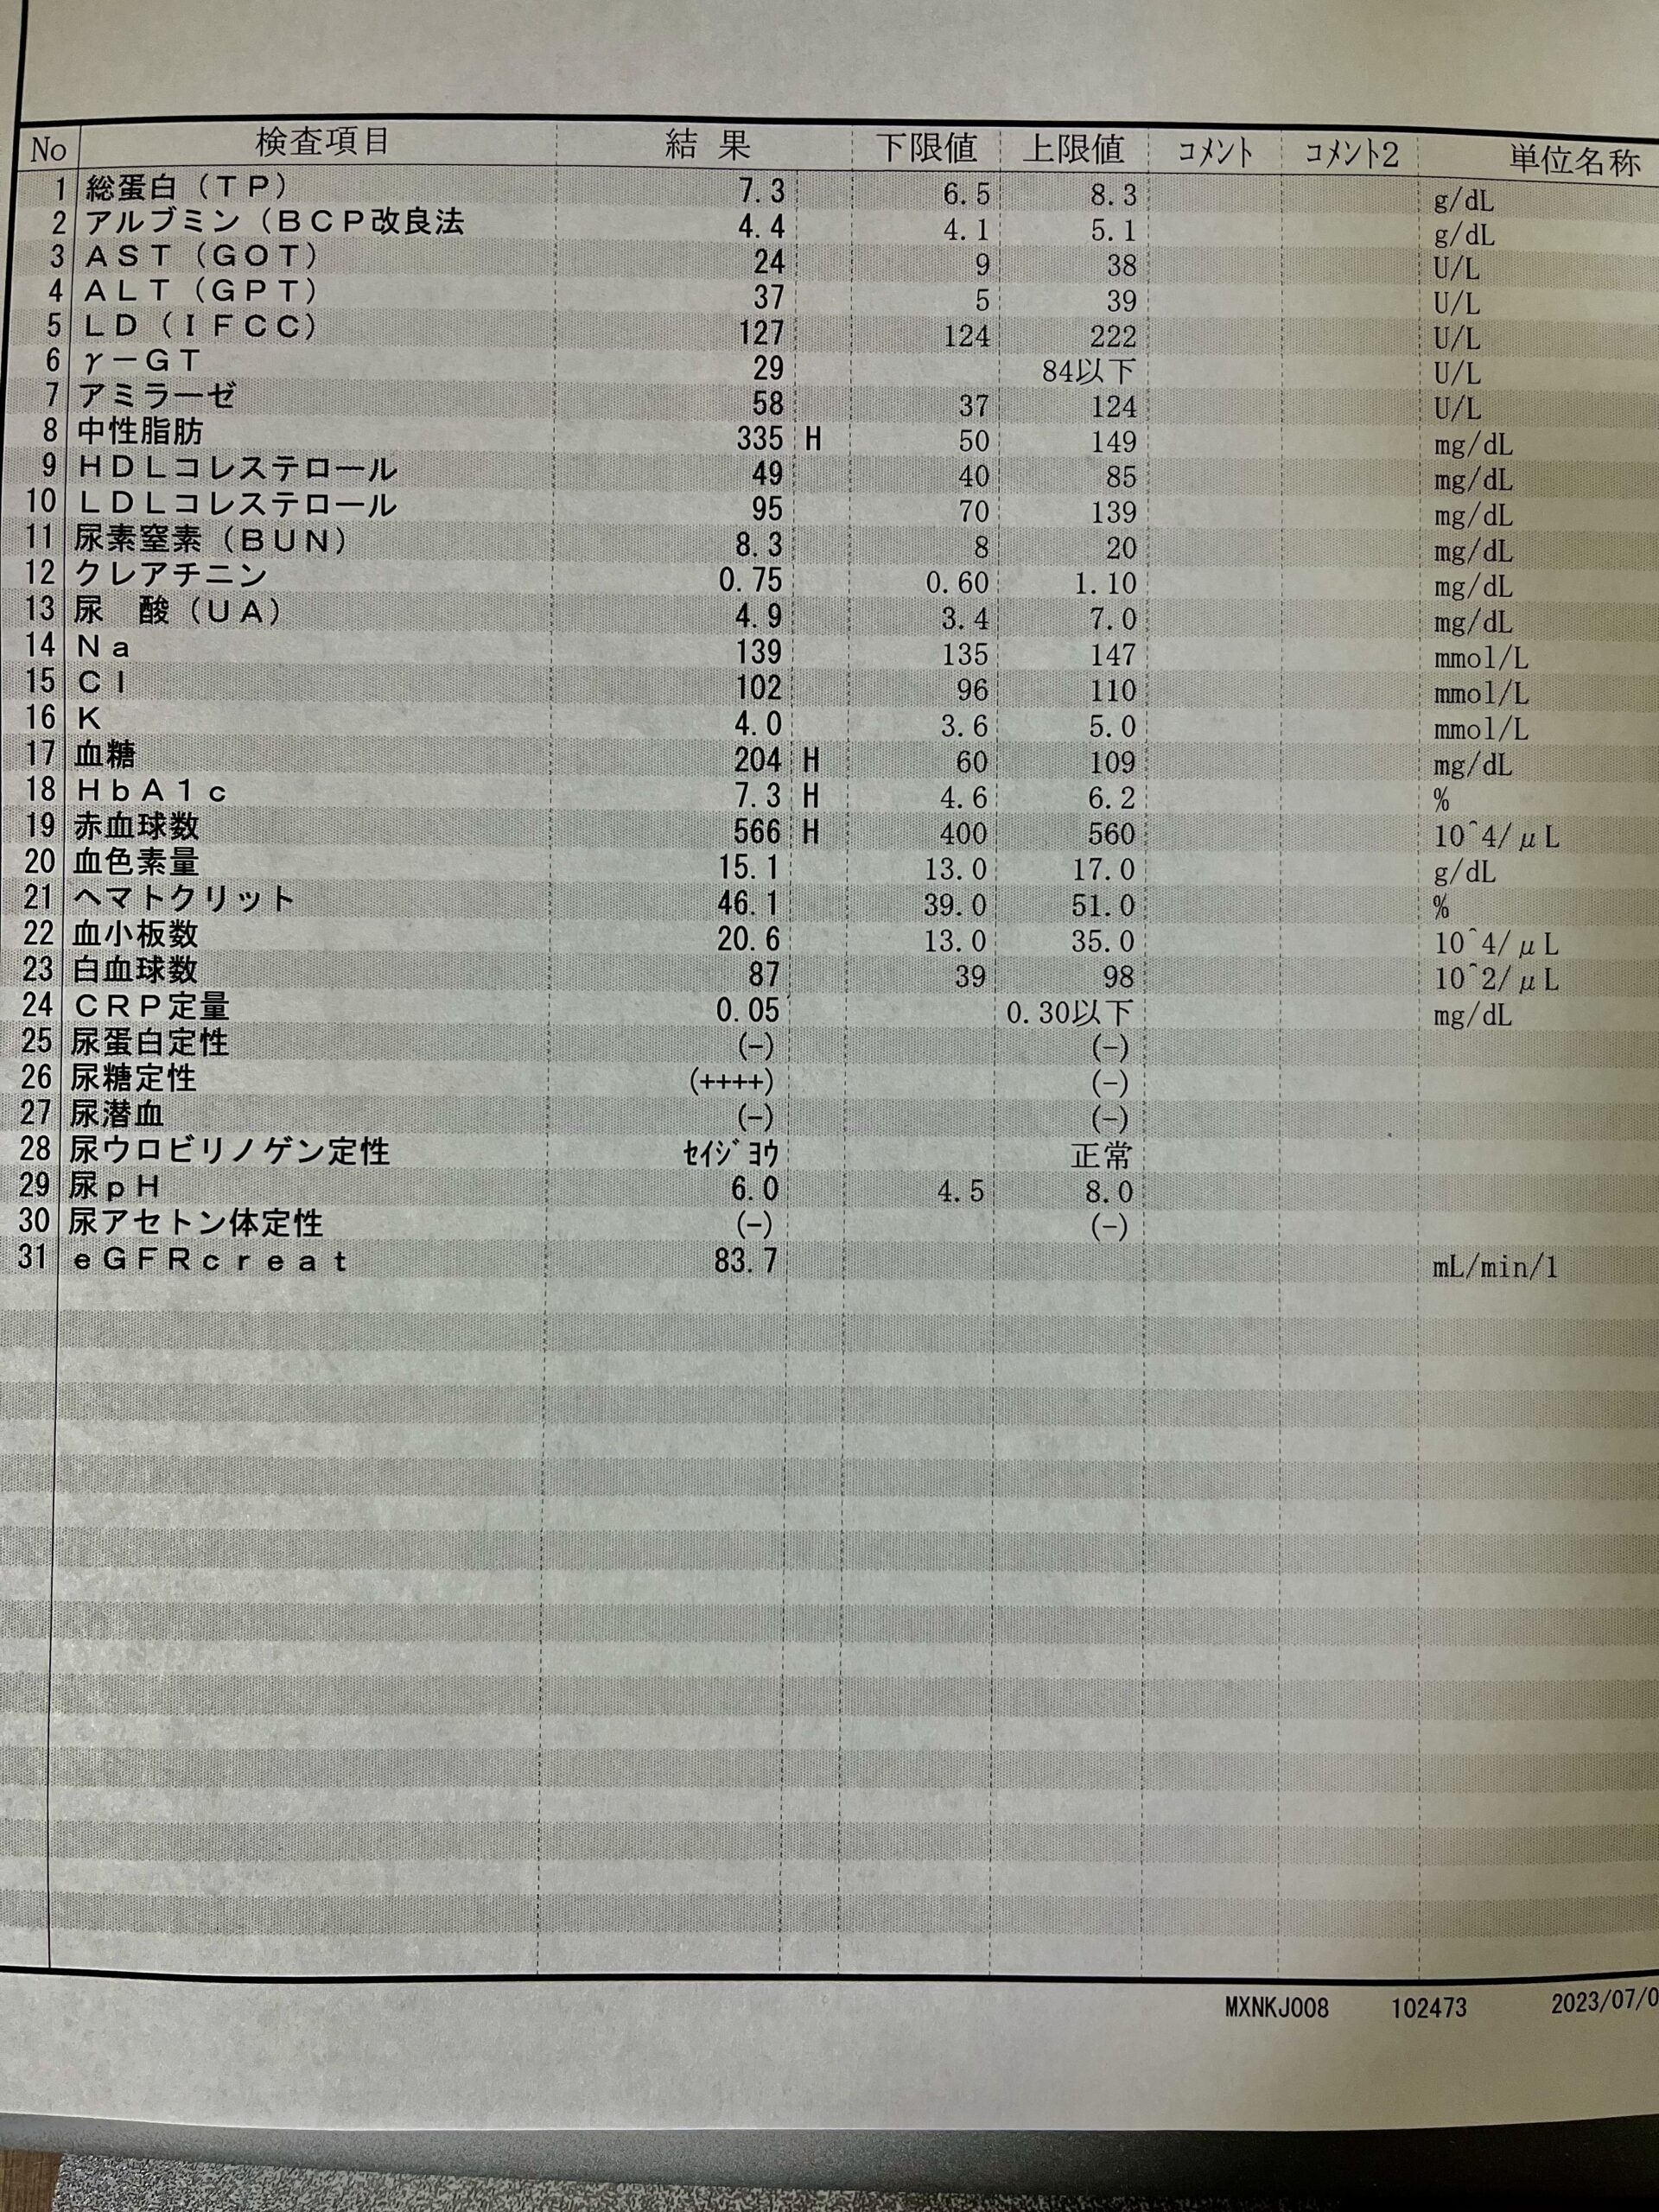 No 検査項目 結果 下限値 上限値 コメント コメント2 単位名称
1 総蛋白(TP) 7.3 6.5 8.3 g/dL
2 アルブミン(BCP改良法 4.4 4.1 5.1 g/dL
3 AST(GOT) 24 9 38 U/L
4 ALT(GPT) 37 5 39 U/L
5 LD(IFCC) 127 124 222 U/L
6 γ-GT 29 84以下 U/L
7 アミラーゼ 58 37 124 U/L
8 中性脂肪 335 H 50 149 mg/dL
9 HDLコレステロール 49 40 85 mg/dL
10 LDLコレステロール 95 70 139 mg/dL
11 尿素窒素(BUN) 8.3 8 20 mg/dL
12 クレアチニン 0.75 0.60 1.10 mg/dL
13 尿 酸(UA) 4.9 3.4 7.0 mg/dL
14 Na 139 135 147 mmol/L
15 Cl 102 96 110 mmol/L
16 K 4.0 3.6 5.0 mmol/L
17 血糖 204 H 60 109 mg/dL
18 HbA1c 7.3 H 4.6 6.2 %
19 赤血球数 566 H 400 560 10^4/μL
20 血色素量 15.1 13.0 17.0 g/dL
21 ヘマトクリット 46.1 39.0 51.0 %
22 血小板数 20.6 13.0 35.0 10^4/μL
23 白血球数 87 39 98 10^2/μL
24 CRP定量 0.05 0.30以下 mg/dL
25 尿蛋白定性 (-) (-)
26 尿糖定性 (++++) (-)
27 尿潜血 (-) (-)
28 尿ウロビリノゲン定性 セイジヨウ 正常
29 尿pH 6.0 4.5 8.0
30 尿アセトン体定性 (-) (-)
31 eGFRcreat 83.7 mL/min/1
MXNKJ008 102473 2023/07/0